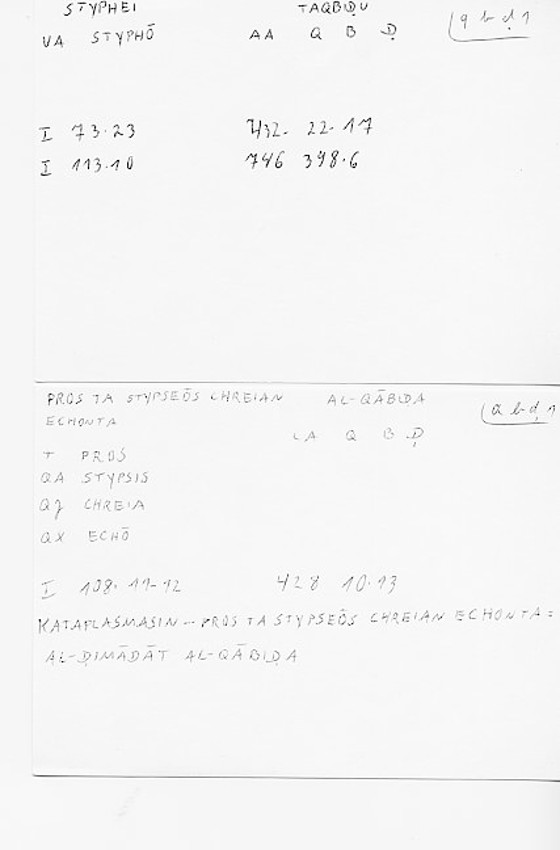 STYPHEI TAQBIḌU
VA STYPHŌ AA Q B Ḍ q b ḍ 1
I 73.23 432. 22. 17
I 113.10 746 398.6
PROS TA STYPSEŌS CHREIAN AL-QĀBIḌA
ECHONTA q b ḍ 1
LA Q B Ḍ
T PROS
QA STYPSIS
QZ CHREIA
QX ECHŌ
I 108. 11-12 428 10.13
KATAPLASMASIN -- PROS TA STYPSEŌS CHREIAN ECHONTA =
AL-ḌIMĀDĀT AL-QĀBIḌA